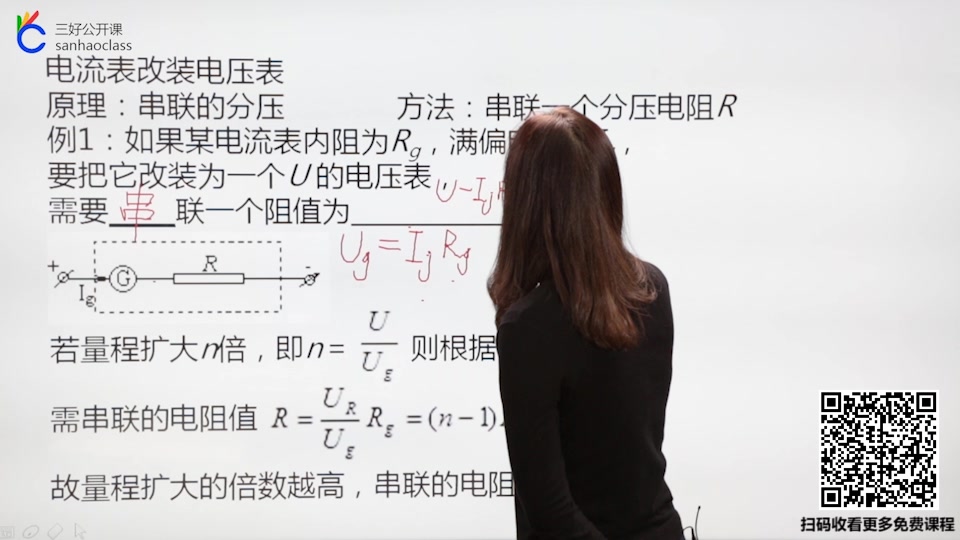 三好公开课
sanhaoclass
电流表改装电压表
原理：串联的分压 方法：串联一个分压电阻R
例1：如果某电流表内阻为Rg，满偏
要把它改装为一个U的电压表，U-Ig
需要 串 联一个阻值为
Ug=IgRg
+ G R -
Ig
若量程扩大n倍，即n= U/Ug 则根据
需串联的电阻值 R= UR/Ug Rg =(n-1)
故量程扩大的倍数越高，串联的电阻
扫码收看更多免费课程